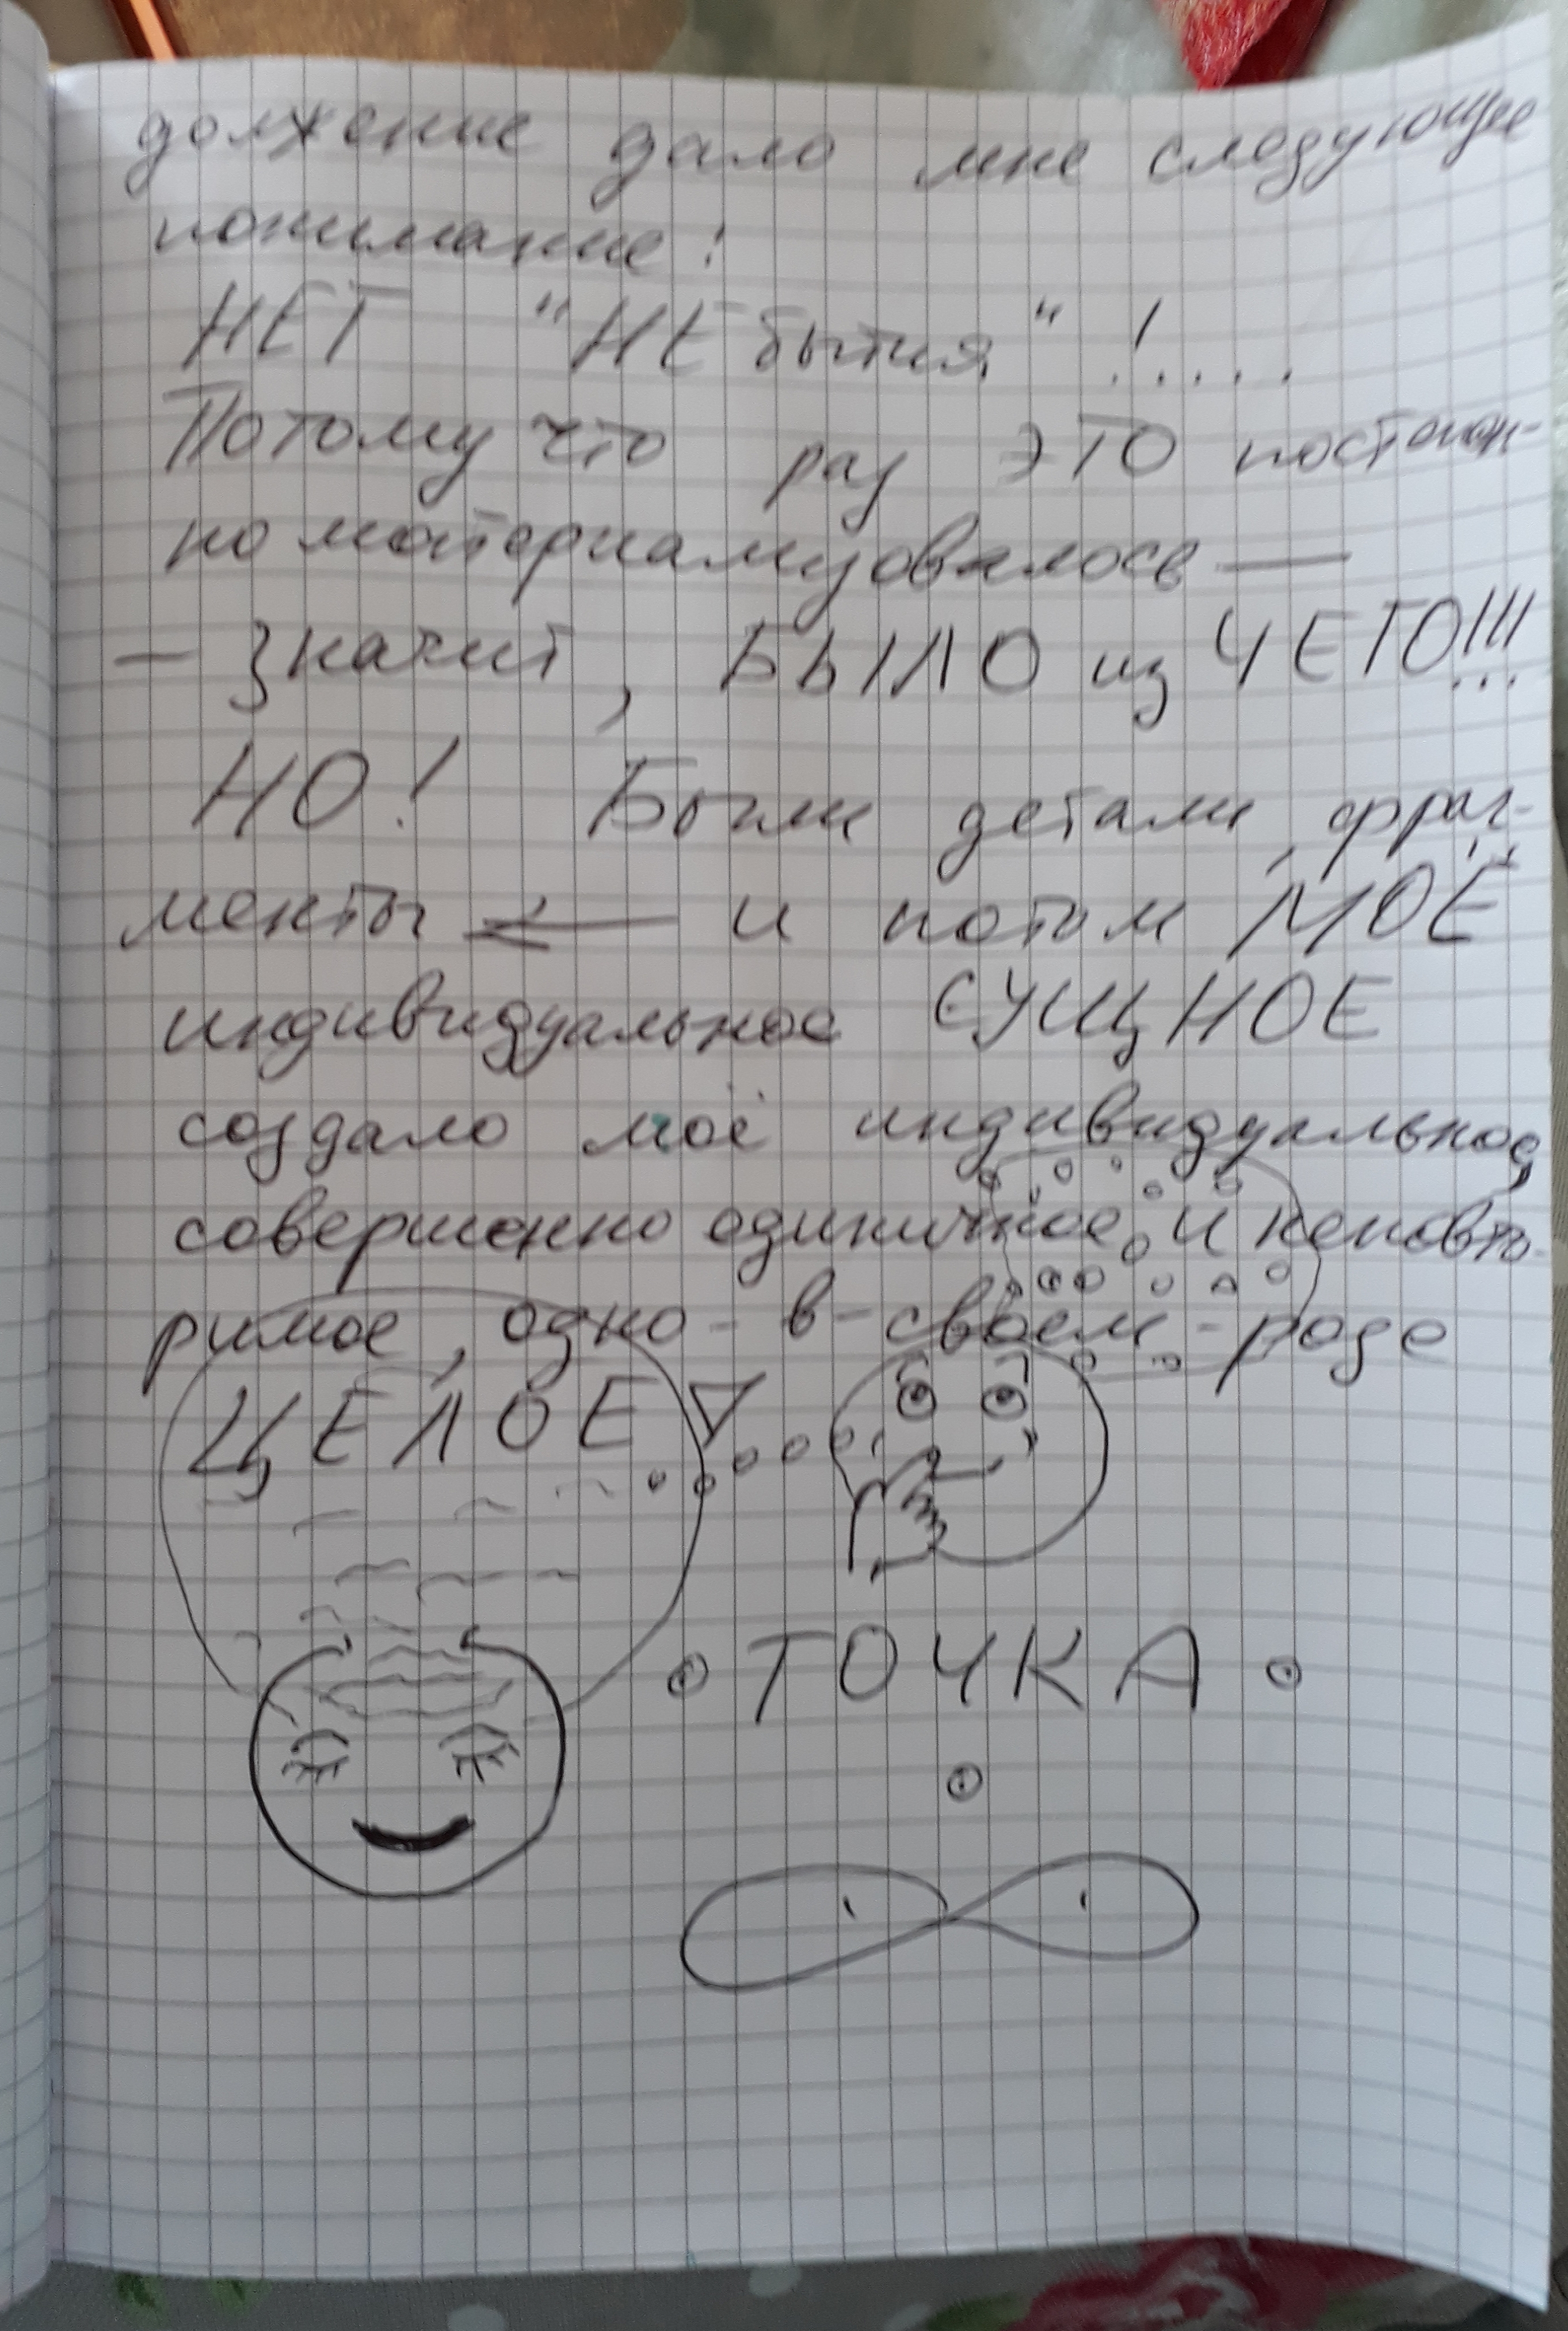 должение дало мне следующее
понимание:
НЕТ "НЕ бытия" !.....
Потому что раз ЭТО постоян-
но материализовалось —
— значит, БЫЛО из ЧЕГО!!!...
НО! Были детали, фраг-
менты — и потом МОЁ
индивидуальное СУЩНОЕ
создало моё индивидуальное,
совершенно единичное и неповто-
римое, одно-в-своём-роде
ЦЕЛОЕ
ТОЧКА